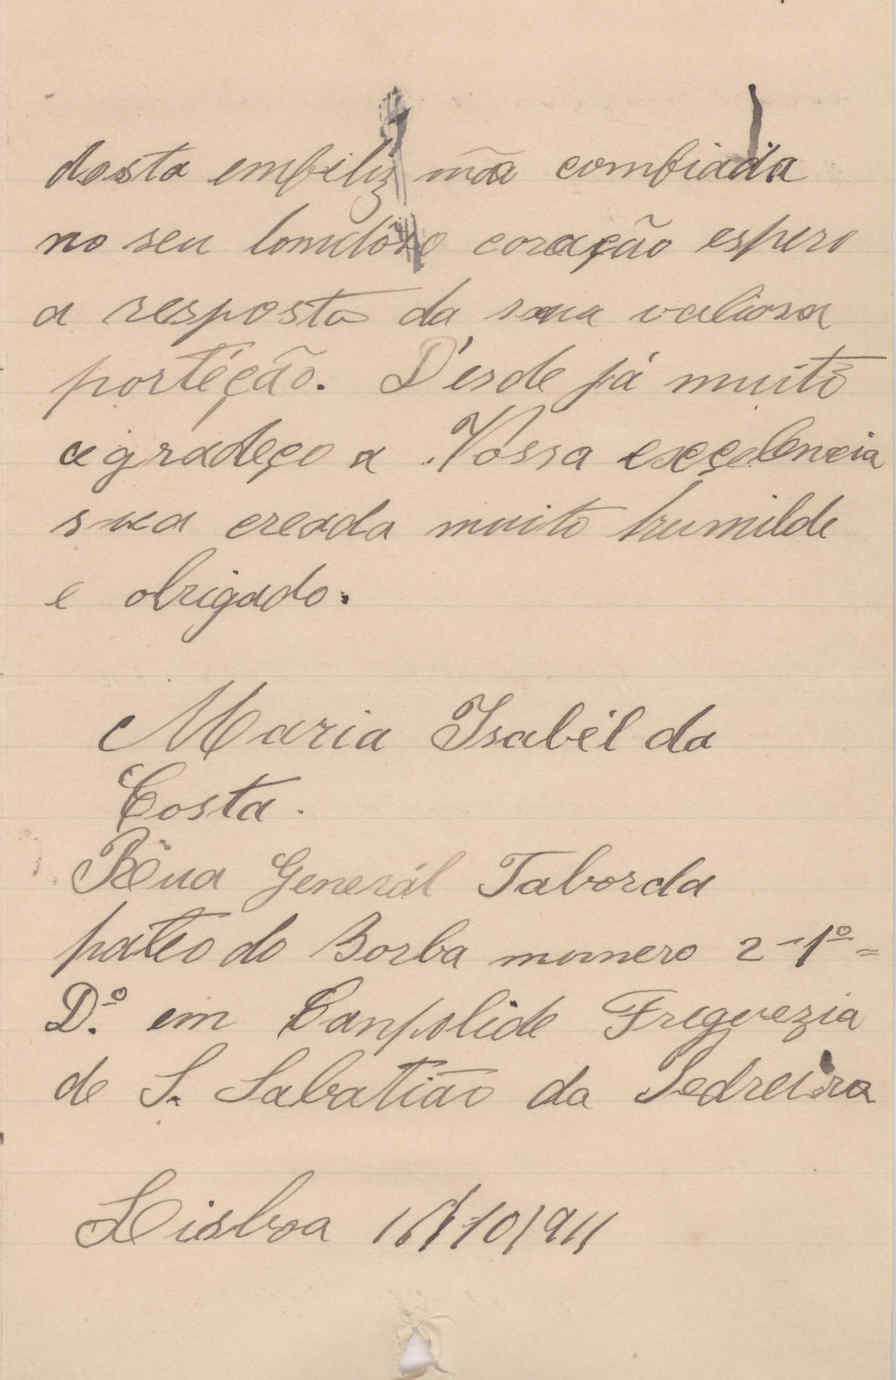 desta emfiliz mãa comfiada
no seu bomdôzo coração espero
a resposta da sua valiosa
portéção. D'esde já muito
agradeço a Vossa excelencia
sua creada muito humilde
e obrigado.
Maria Isabél da
Costa.
Rua Generál Taborda
pateo do Borba numero 2-1º=
D.º em Canpolide Freguezia
de S. Sabatião da Pedreira
Lisboa 16/10/911